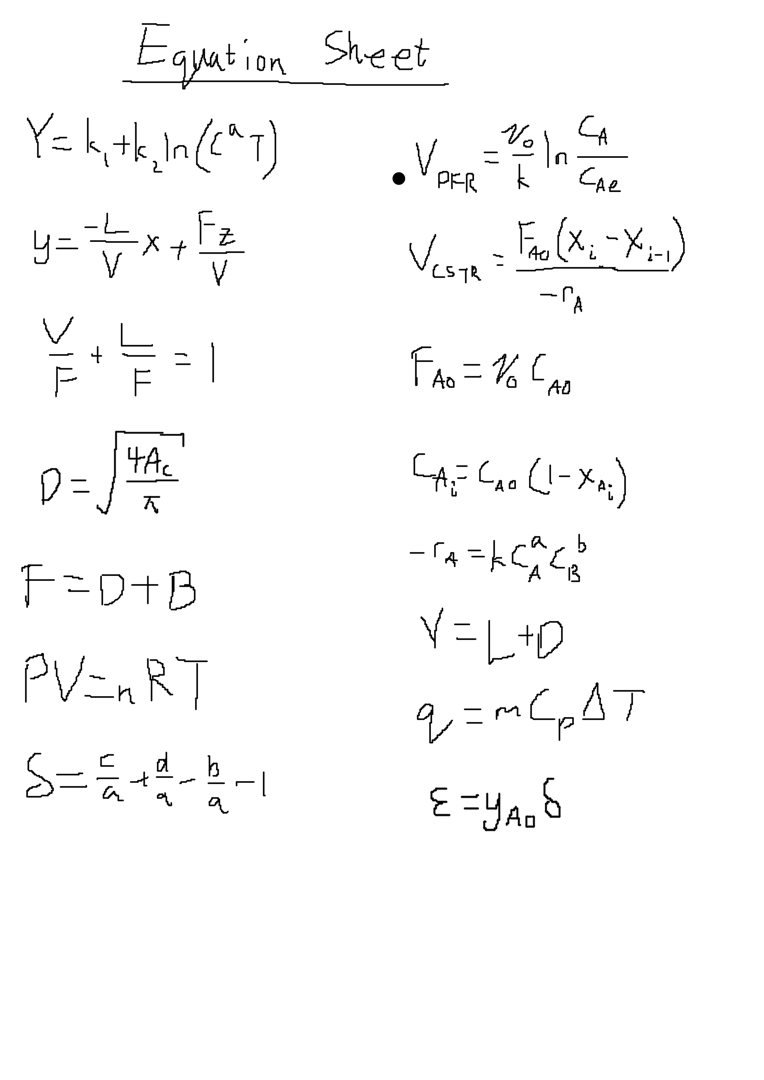 Equation Sheet
Y = k₁ + k₂ ln(Cᵃ T)
y = -L/V x + Fz/V
V/F + L/F = 1
D = √(4A_c/π)
F = D + B
PV = nRT
δ = c/a + d/a - b/a - 1
• V_PFR = v₀/k ln C_A/C_Ae
V_CSTR = F_A0 (X_i - X_i-1)/-r_A
F_A0 = v₀ C_A0
C_Ai = C_A0 (1 - X_Ai)
-r_A = k C_A^a C_B^b
V = L + D
q = m C_p ΔT
ε = y_A0 δ